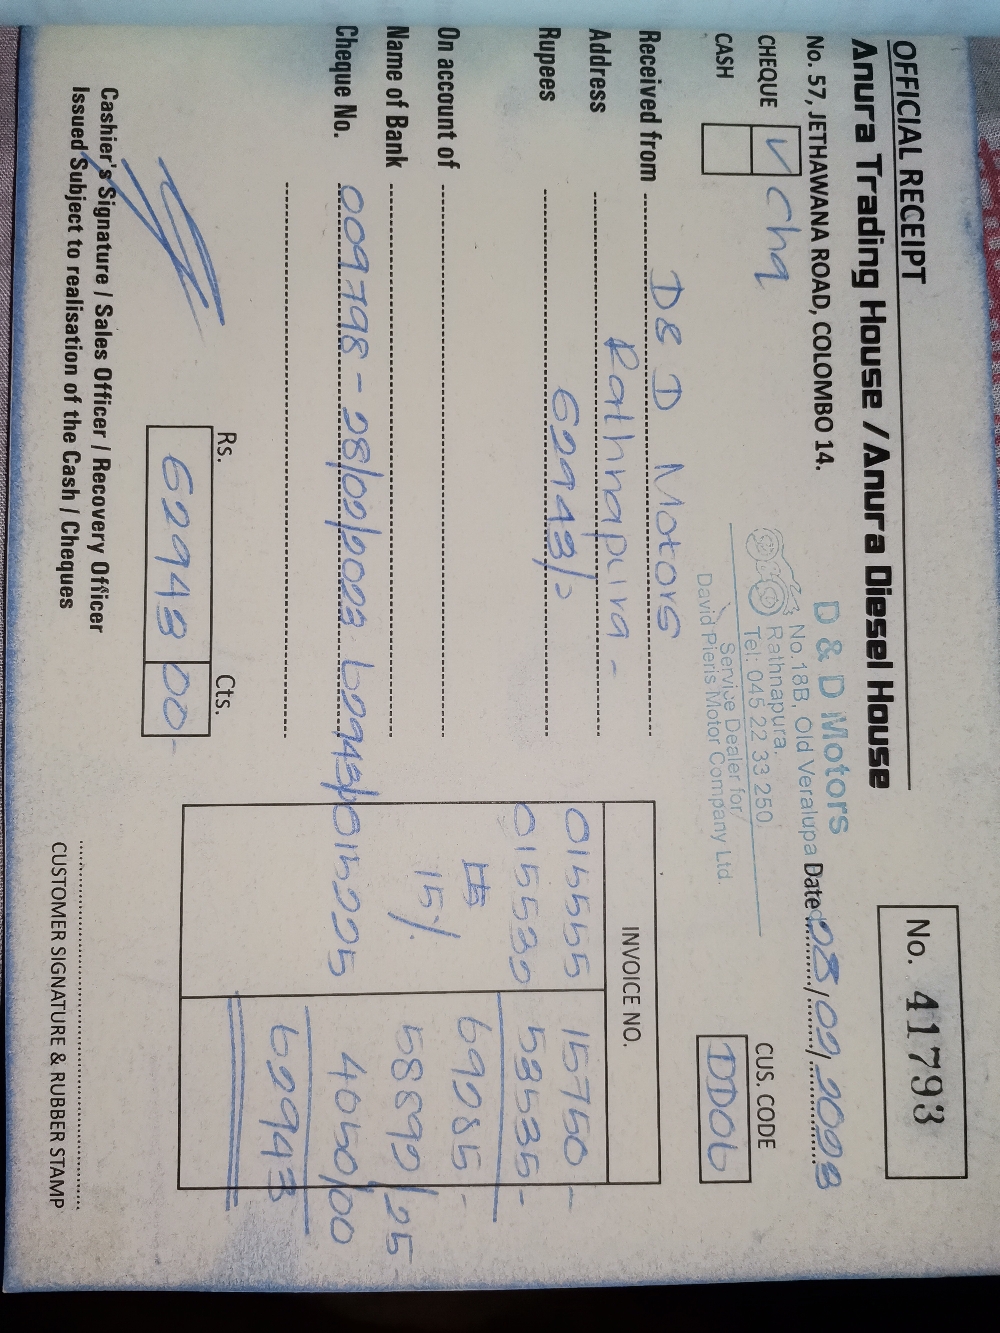 OFFICIAL RECEIPT
Anura Trading House / Anura Diesel House
No. 57, JETHAWANA ROAD, COLOMBO 14.
No. 41793
D & D Motors
No.18B, Old Veralupa
Rathnapura.
Tel: 045 22 33 250
Service Dealer for
David Pieris Motor Company Ltd.
Date 08/02/2023
CHEQUE ✓ chq
CASH
CUS. CODE
DD06
Received from D & D Motors
Address Rathnapura -
Rupees 62943/=
On account of
Name of Bank
Cheque No. 009798 - 28/02/2023 62943/
INVOICE NO.
015555 15750 -
015530 53535 -
69285 -
15% 58892/25
015205 4050/00
62943
Rs. Cts.
62943 00
Cashier's Signature / Sales Officer / Recovery Officer
Issued Subject to realisation of the Cash / Cheques
CUSTOMER SIGNATURE & RUBBER STAMP